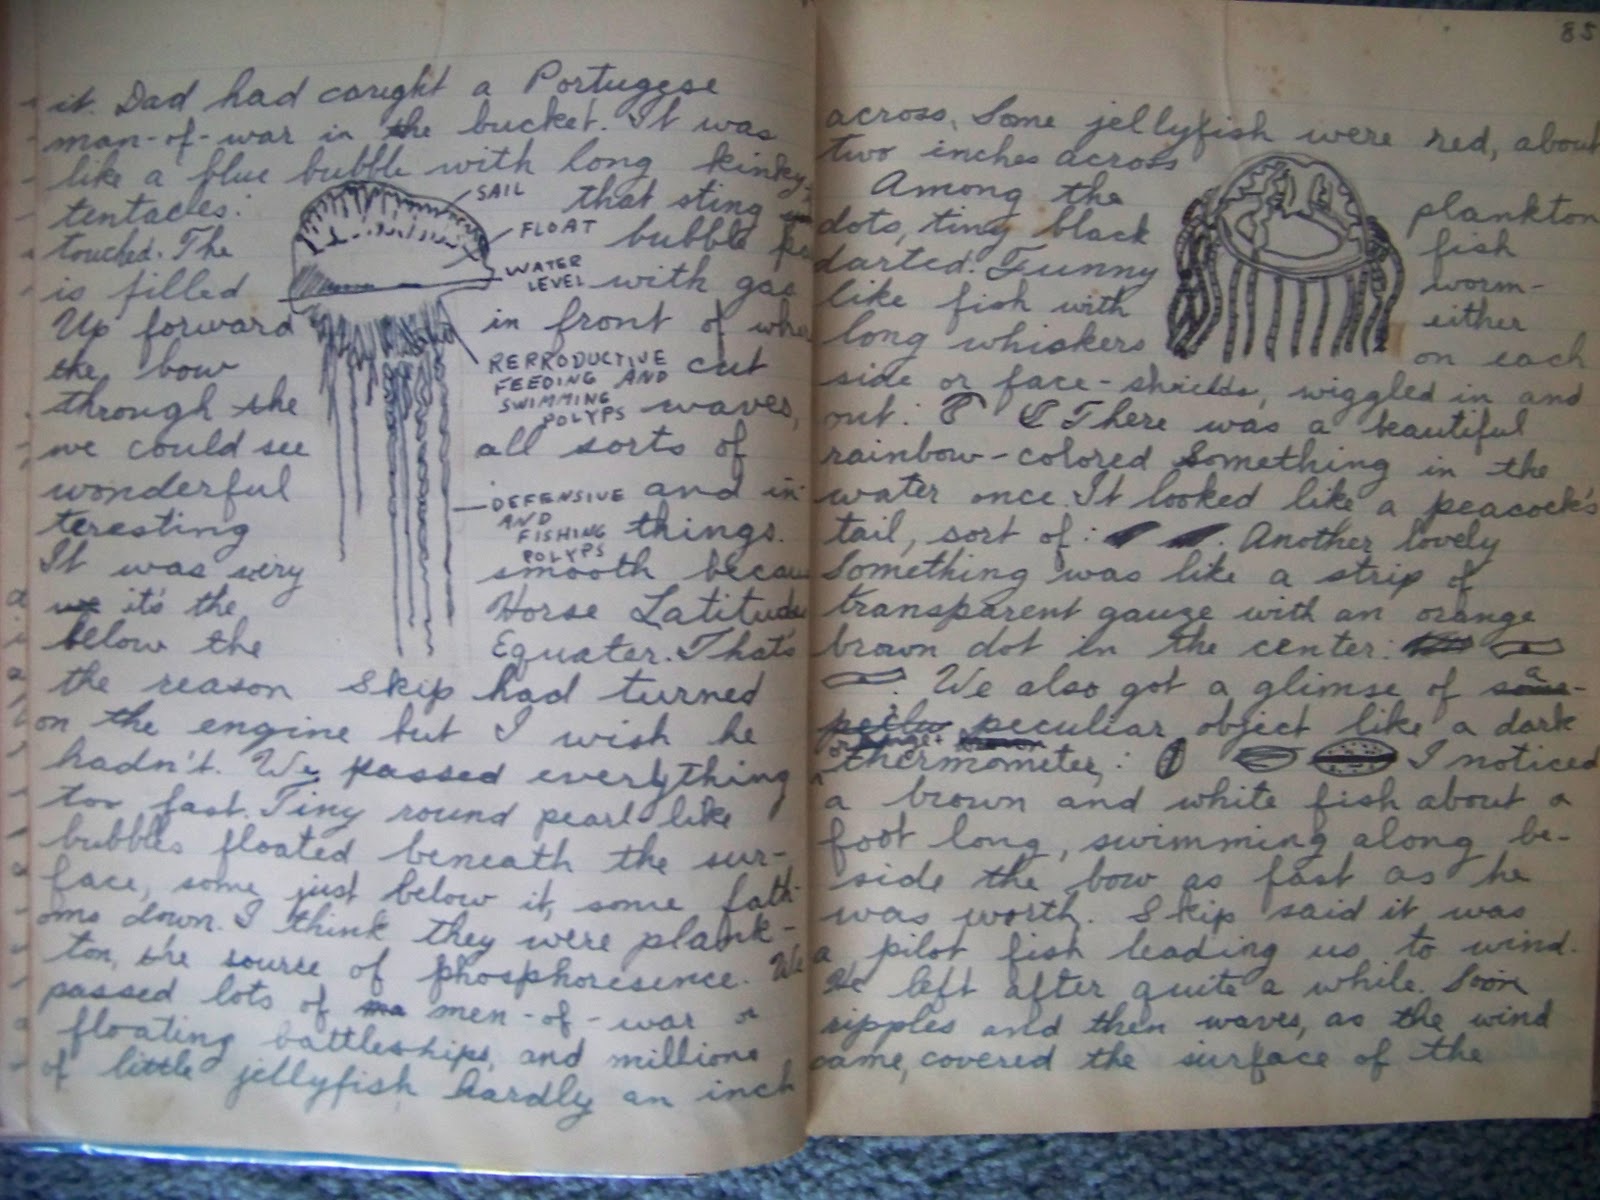 it. Dad had caught a Portugese
man-of-war in the bucket. It was
like a blue bubble with long kinky
tentacles that sting
touched. The bubble
is filled with gas
Up forward in front of
the bow cut
through the waves,
we could see all sorts of
wonderful and in
teresting things.
It was very smooth
it's the Horse Latitude
below the Equater. That's
the reason Skip had turned
on the engine but I wish he
hadn't. We passed everything
too fast. Tiny round pearl-like
bubbles floated beneath the sur-
face, some just below it, some fath-
oms down. I think they were plank-
ton, the source of phosphoresence. We
passed lots of men-of-war or
floating battleships, and millions
of little jellyfish hardly an inch
SAIL
FLOAT
WATER
LEVEL
RERRODUCTIVE
FEEDING AND
SWIMMING
POLYPS
DEFENSIVE
AND
FISHING
POLYPS
85
across. Some jellyfish were red, about
two inches across
Among the plankton
dots, tiny black fish
darted. Funny worm-
like fish with either
long whiskers on each
side or face-shields, wiggled in and
out: There was a beautiful
rainbow-colored something in the
water once. It looked like a peacock's
tail, sort of: . Another lovely
something was like a strip of
transparent gauze with an orange
brown dot in the center:
. We also got a glimse of a
peculiar object like a dark
thermometer: I noticed
a brown and white fish about a
foot long, swimming along be-
side the bow as fast as he
was worth. Skip said it was
a pilot fish leading us to wind.
He left after quite a while. Soon
ripples and then waves, as the wind
came, covered the surface of the